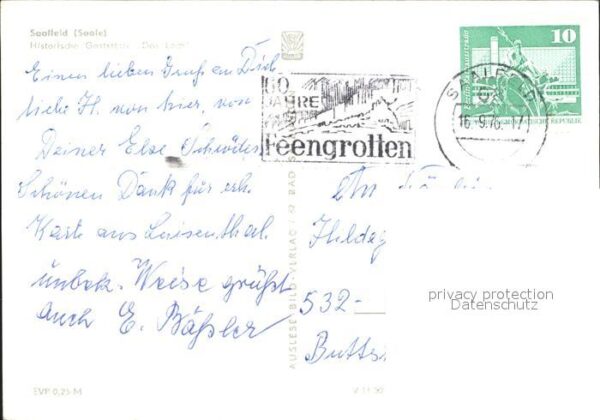 Saalfeld (Saale)
Historische Gaststätte „Das Loch“
Einen lieben Gruß an Dich
liebe H. von hier, von
Deiner Else
Schönen Dank für erh.
Karte aus Luisenthal.
unbek. Weise grüßt
auch E. Bäßler
EVP 0,25 M
AUSLESE-BILD-VERLAG
60
JAHRE
Feengrotten
SAALFELD
16.-9.76.-17
10
DEUTSCHE DEMOKRATISCHE REPUBLIK
An
Hildeg
532-
Butts
privacy protection
Datenschutz